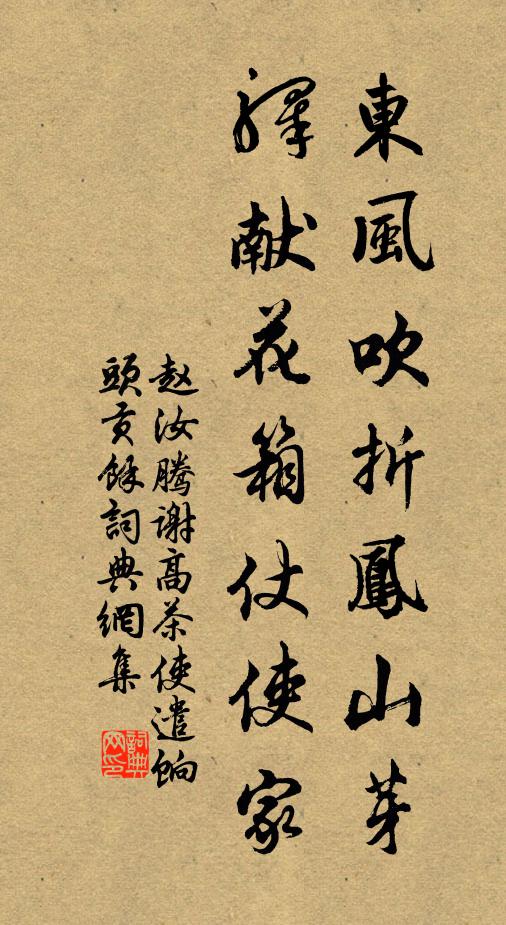 東風吹折鳳山芽
驛献花箱仗使家
赵汝騰谢高茶使遣餉
頭貢餘詞典網集
詞典網印